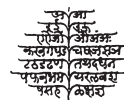 अ आ
एऐओ औअंअः
कखगघङ चछजझञ
टठडढण तथदधन
पफबभम यरलवश
षसह ळक्षज्ञ